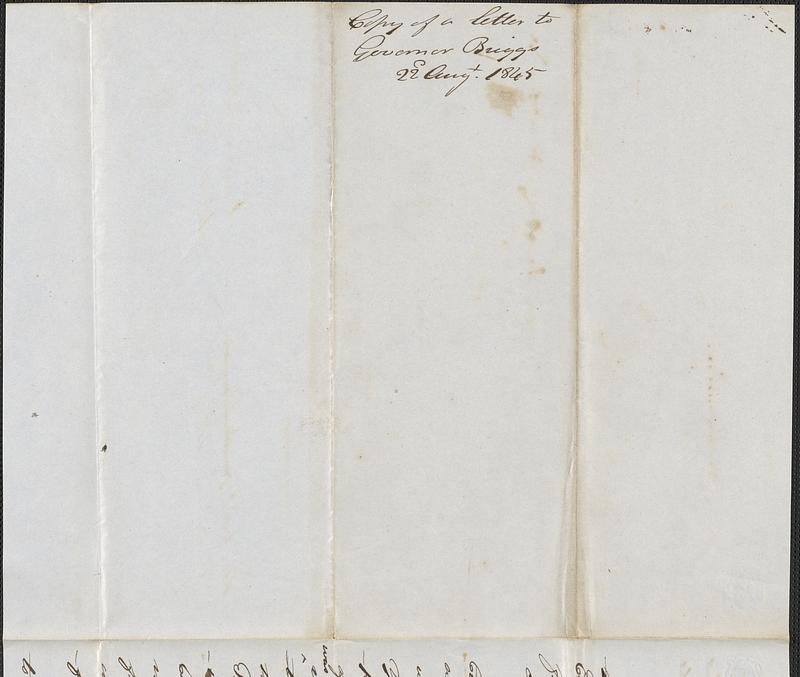 Copy of a letter to
Governor Briggs
22d Augt. 1845